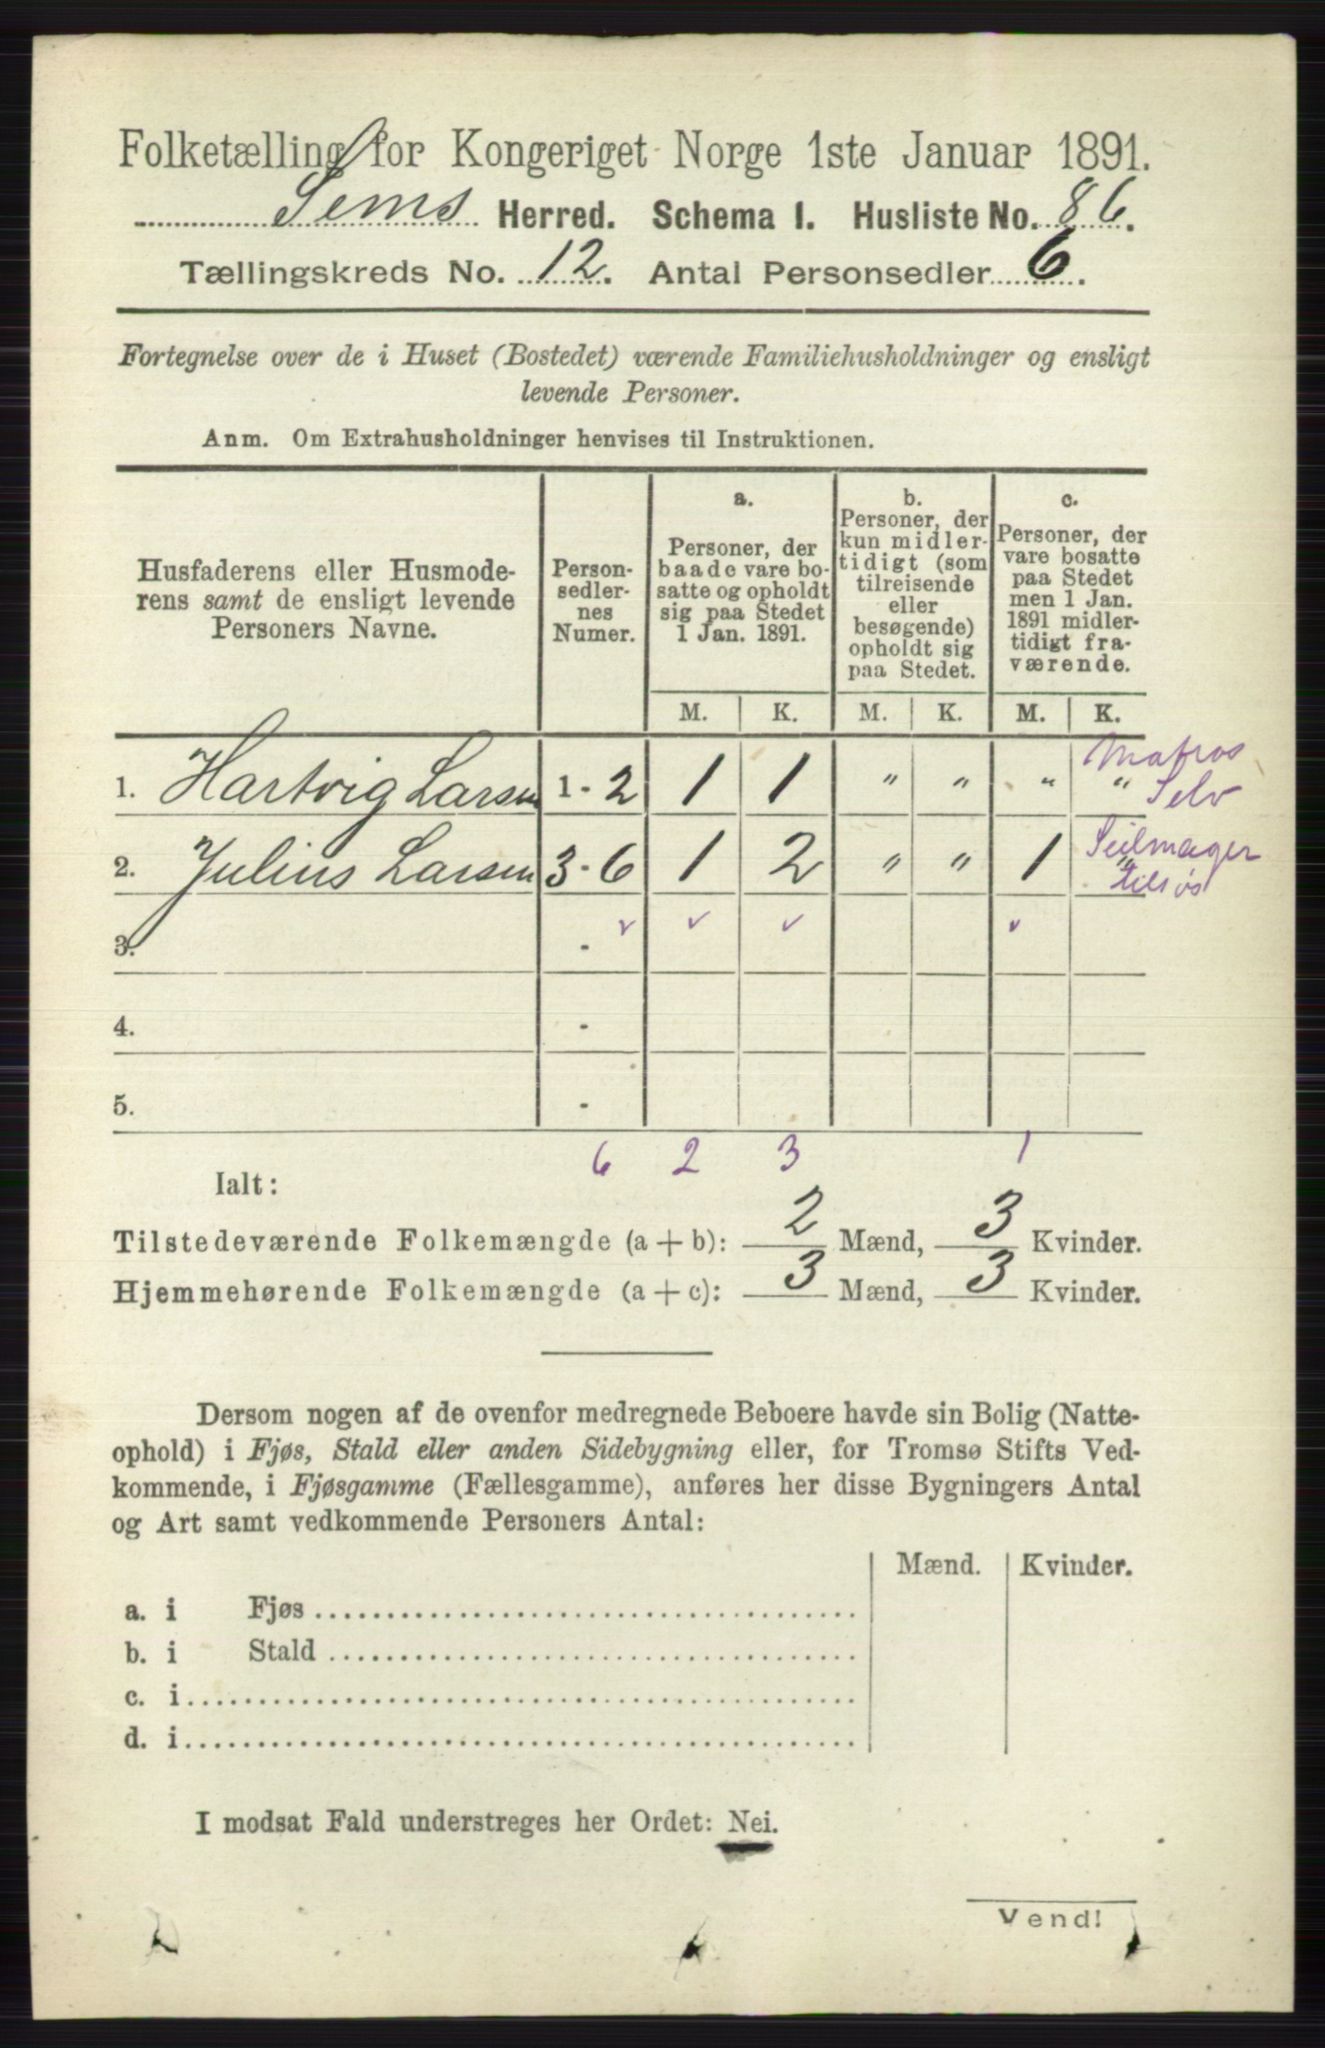 Folketælling for Kongeriget Norge 1ste Januar 1891.
Sems Herred. Schema 1. Husliste No. 86.
Tællingskreds No. 12. Antal Personsedler 6.
Fortegnelse over de i Huset (Bostedet) værende Familiehusholdninger og ensligt
levende Personer.
Anm. Om Extrahusholdninger henvises til Instruktionen.
Husfaderens eller Husmode-
rens samt de ensligt levende
Personers Navne.
Person-
sedler-
nes
Numer.
a.
Personer, der
baade vare bo-
satte og opholdt
sig paa Stedet
1 Jan. 1891.
b.
Personer, der
kun midler-
tidigt (som
tilreisende
eller
besøgende)
opholdt sig
paa Stedet.
c.
Personer, der
vare bosatte
paa Stedet
men 1 Jan.
1891 midler-
tidigt fra-
værende.
M. K. M. K. M. K.
1. Hartvig Larsen 1 - 2 1 1 " " " " Matros Selv
2. Julius Larsen 3 - 6 1 2 " " 1 " Seilmager tilsøs
3. -
4. -
5. -
6 2 3 1
Ialt:
Tilstedeværende Folkemængde (a + b): 2 Mænd, 3 Kvinder.
Hjemmehørende Folkemængde (a + c): 3 Mænd, 3 Kvinder.
Dersom nogen af de ovenfor medregnede Beboere havde sin Bolig (Natte-
ophold) i Fjøs, Stald eller anden Sidebygning eller, for Tromsø Stifts Ved-
kommende, i Fjøsgamme (Fællesgamme), anføres her disse Bygningers Antal
og Art samt vedkommende Personers Antal:
Mænd. Kvinder.
a. i Fjøs
b. i Stald
c. i
d. i
I modsat Fald understreges her Ordet: Nei.
Vend!